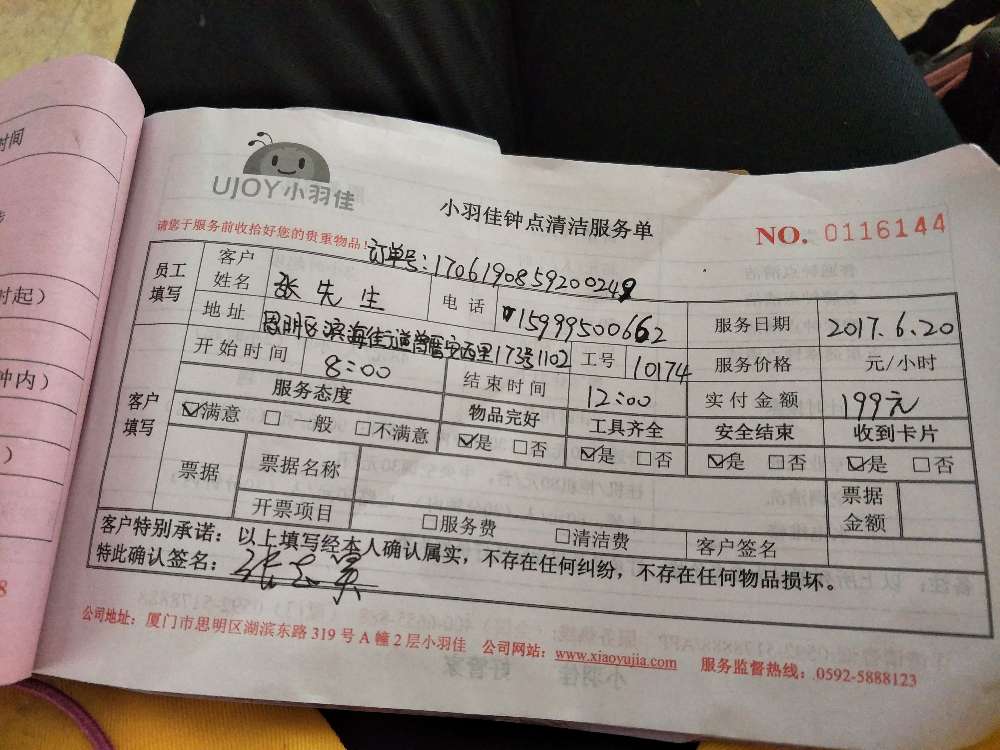 时间
时起）
钟内）
）
8
UJOY小羽佳
小羽佳钟点清洁服务单
NO. 0116144
请您于服务前收拾好您的贵重物品!
订单号:
员工填写
客户姓名
张先生
电话
15999500662
服务日期
2017.6.20
地址
思明区滨海街道曾厝安西里173号1102
工号
10174
服务价格
元/小时
客户填写
开始时间
8:00
结束时间
12:00
实付金额
199元
服务态度
物品完好
工具齐全
安全结束
收到卡片
☑满意 □一般 □不满意
☑是 □否
☑是 □否
☑是 □否
☑是 □否
票据
票据名称
票据金额
开票项目
□服务费 □清洁费
客户签名
客户特别承诺：以上填写经本人确认属实，不存在任何纠纷，不存在任何物品损坏。
特此确认签名：
公司地址：厦门市思明区湖滨东路319号A幢2层小羽佳 公司网站：www.xiaoyujia.com 服务监督热线：0592-5888123